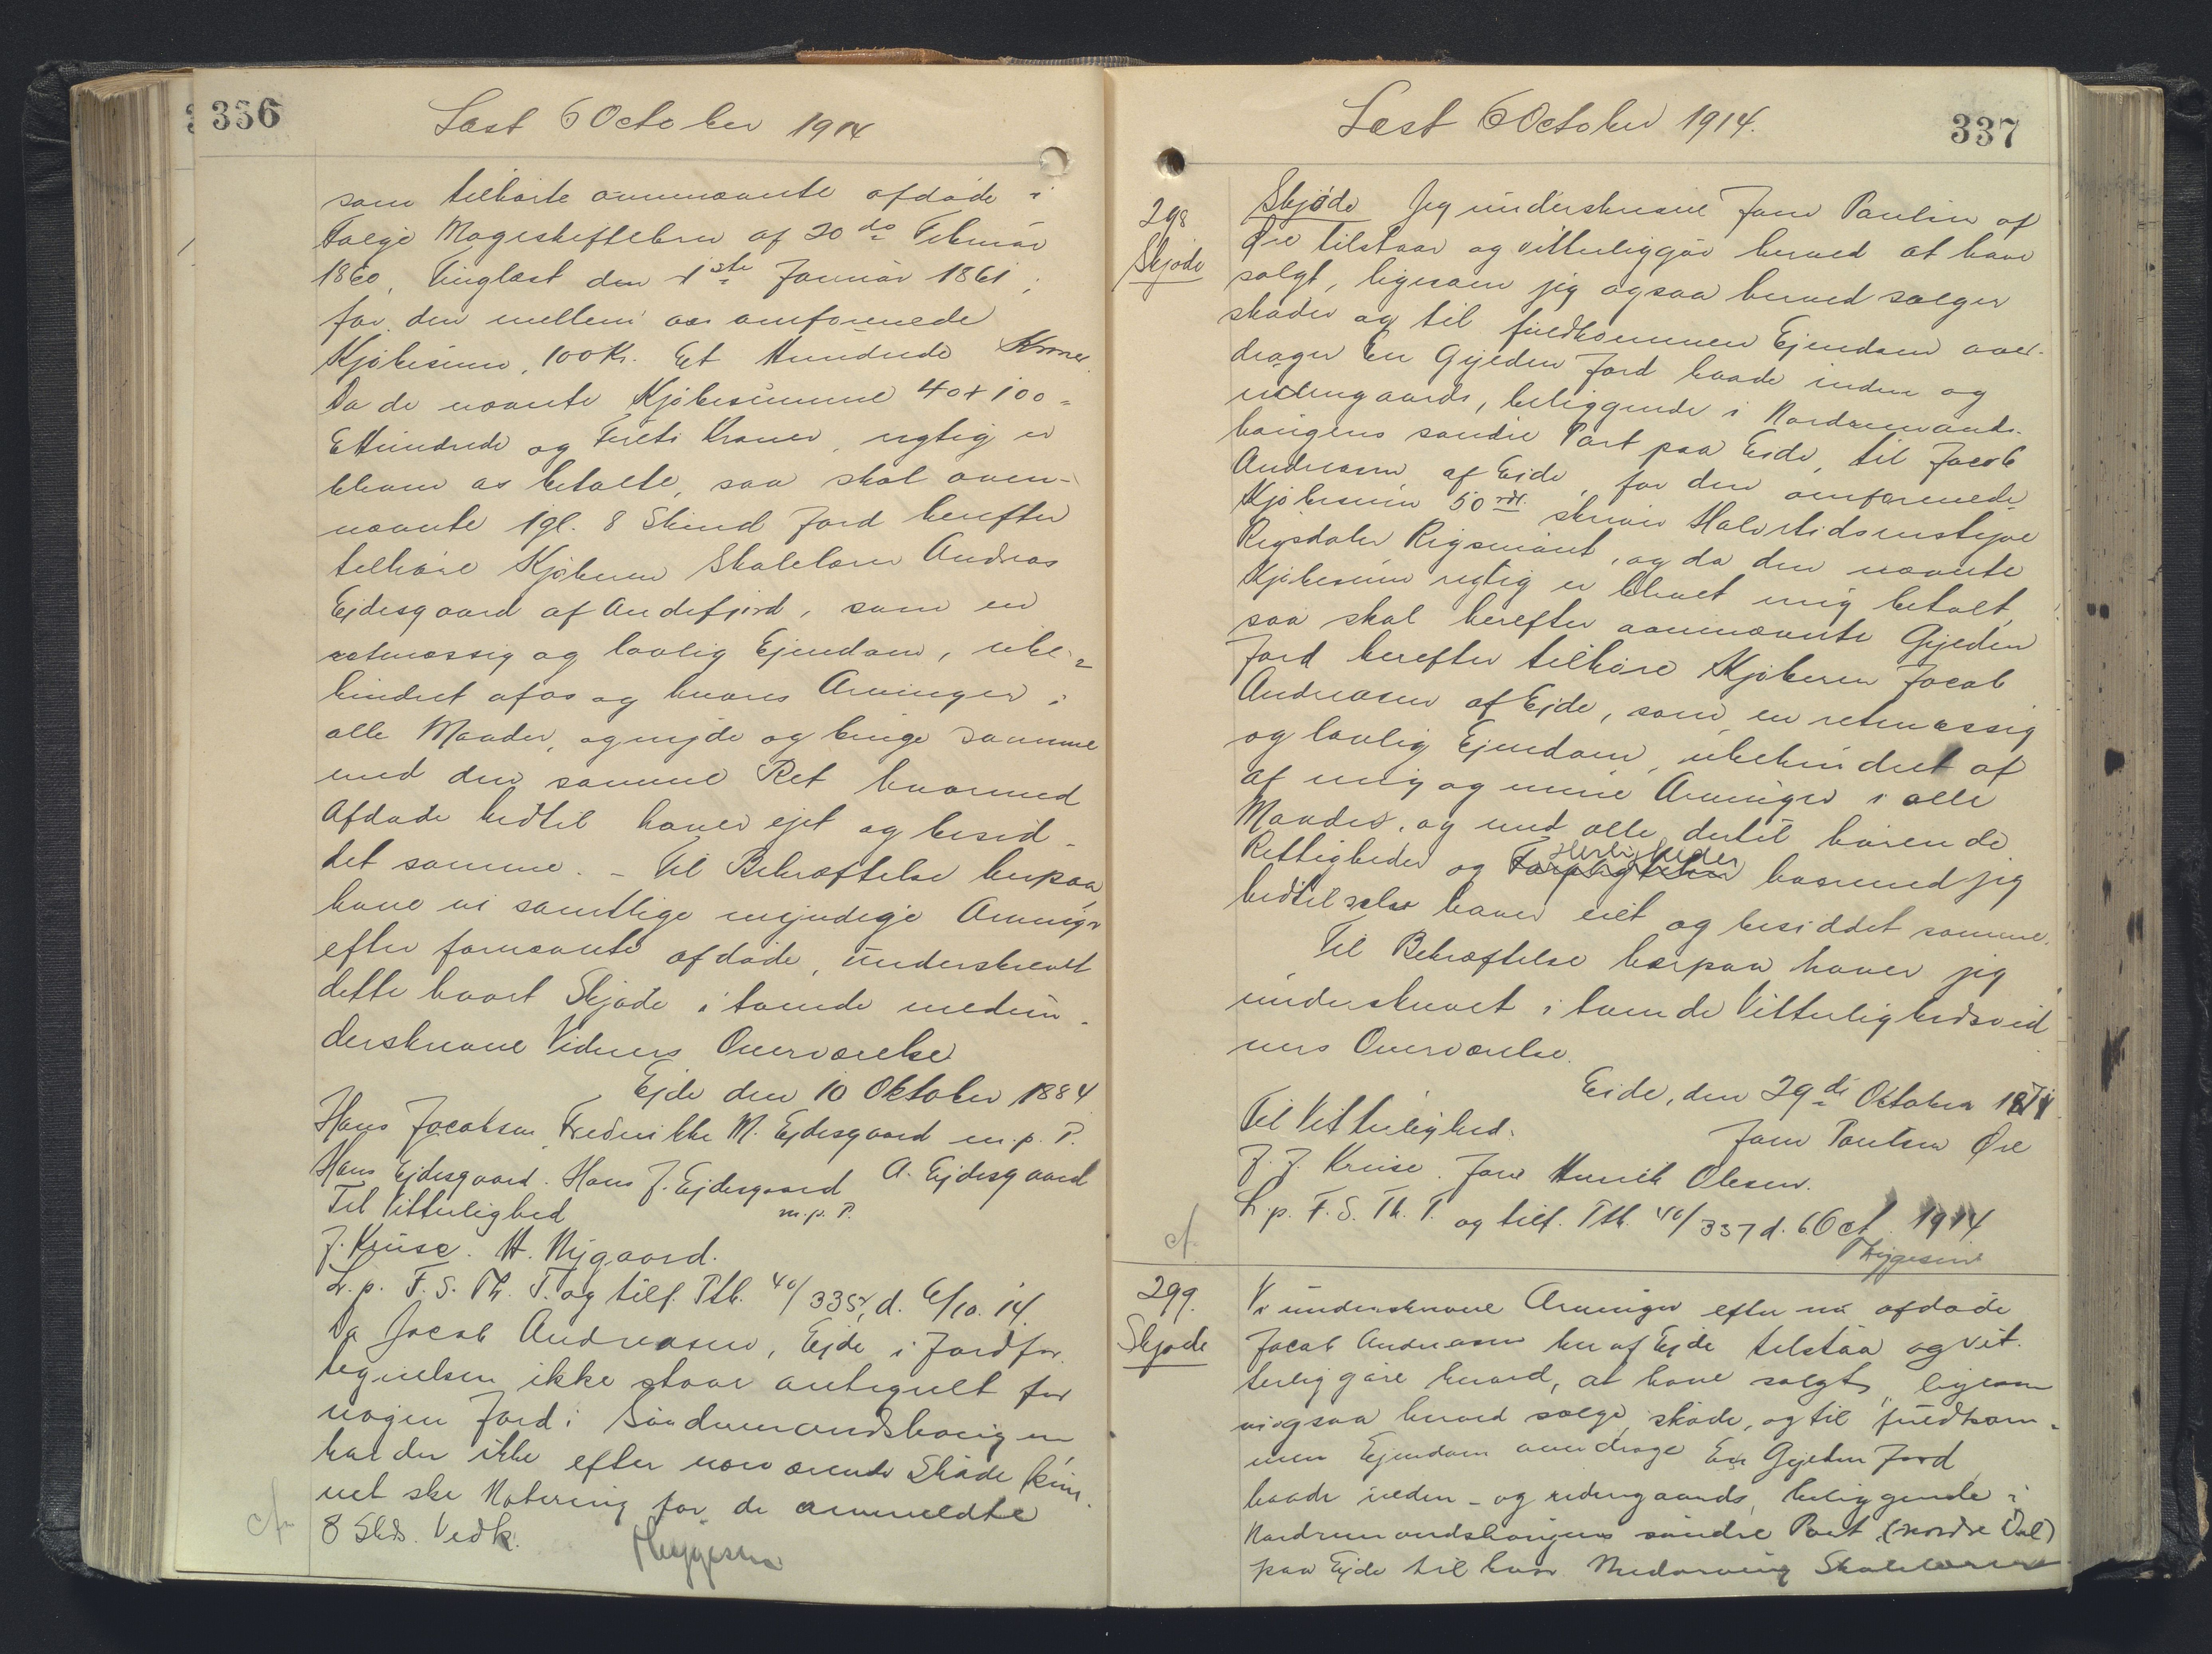 336
Læst 6 October 1914
som tilhørte ovennævnte afdøde i
Følge Mageskiftebrev af 20de Februar
1860, Tinglæst den 1ste Januar 1861,
for den mellem os omforenede
Kjøbesum, 100 Kr. Et Hundrede Kroner.
Da de nævnte Kjøbesumme 40 + 100 =
Et Hundrede og Fireti Kroner, rigtig er
bleven os betalte, saa skal oven-
nævnte 1 gl. 8 Skind Jord herefter
tilhøre Kjøberen Skolelærer Andreas
Ejdesgaard af Andefjord, som en
retmæssig og lovlig Ejendom, ube-
hindret af os og vores Arvinger i
alle Maader, og nyde og bruge samme
med den samme Ret hvormed
Afdøde hidtil haver ejet og besid-
det samme. - Til Bekræftelse herpaa
have vi samtlige myndige Arvinger
efter fornævnte afdøde, underskrevet
dette vort Skjøde i tvende medun-
derskrevne Vidners Overværelse
Ejde den 10 Oktober 1884
Hans Jacobsen Frederikke M. Ejdesgaard m. p. P.
Hans Ejdesgaard. Hans J. Ejdesgaard A. Ejdesgaard
m. p. P.
Til Vitterlighed
J. Kruse. H. Nygaard.
L. p. F. S. Th. T. og tilf. Ptb. 40/335, d. 6/10. 14.
Da Jacob Andreasen, Ejde i Jordfor-
tegnelsen ikke staar antegnet for
nogen Jord i Søndrumandshougen
har der ikke efter nærværende Skøde kun-
net ske Notering for de anmeldte
8 Skd. Vedk.
Thygesen
337
Læst 6 October 1914.
298
Skjøde
Skjøde Jeg underskrevne Jone Poulsen af
Øre tilstaar og vitterliggør herved at have
solgt, ligesom jeg ogsaa herved sælger
skøder og til fuldkommen Ejendom over-
drager En Gyjeden Jord baade inden og
udengaards, beliggende i Nordrumands-
hougens søndre Part paa Eide, til Jacob
Andreasen af Eide, for den omforenede
Kjøbesum 50 rd. skriver Halvtredsindstyve
Rigsdaler Rigsmønt, og da den nævnte
Kjøbesum rigtig er blevet mig betalt,
saa skal herefter ovennævnte Gyjeden
Jord herefter tilhøre Kjøberen Jacob
Andreasen af Ejde, som en retmæssig
og lovlig Ejendom, ubehindret af
af mig og mine Arvinger i alle
Maader, og med alle dertil hørende
Rettigheder og Herligheder hvormed jeg
hidtil selv haver eiet og besiddet samme.
Til Bekræftelse herpaa haver jeg
underskrevet i tvende Vitterlighedsvid
ners Overværelse.
Eide, den 29de Oktober 1874
Til Vitterlighed. Jone Poulsen Øre
J. J. Kruse. Jone Henrik Olesen.
L. p. F. S. Th. T. og tilf. Ptb. 40/337 d. 6 Oct. 1914
Thygesen
299.
Skjøde
Vi underskrevne Arvinger efter nu afdøde
Jacob Andreasen her af Ejde tilstaa og vit-
terliggøre herved, at have solgt, ligesom
vi ogsaa herved sælge, skøde, og til fuldkom-
men Ejendom overdrage En Gyjeden Jord
baade inden- og udengaards, beliggende i
Nordrumandshougens søndre Part (nordre Del)
paa Ejde til vor Medarving Skolelærer